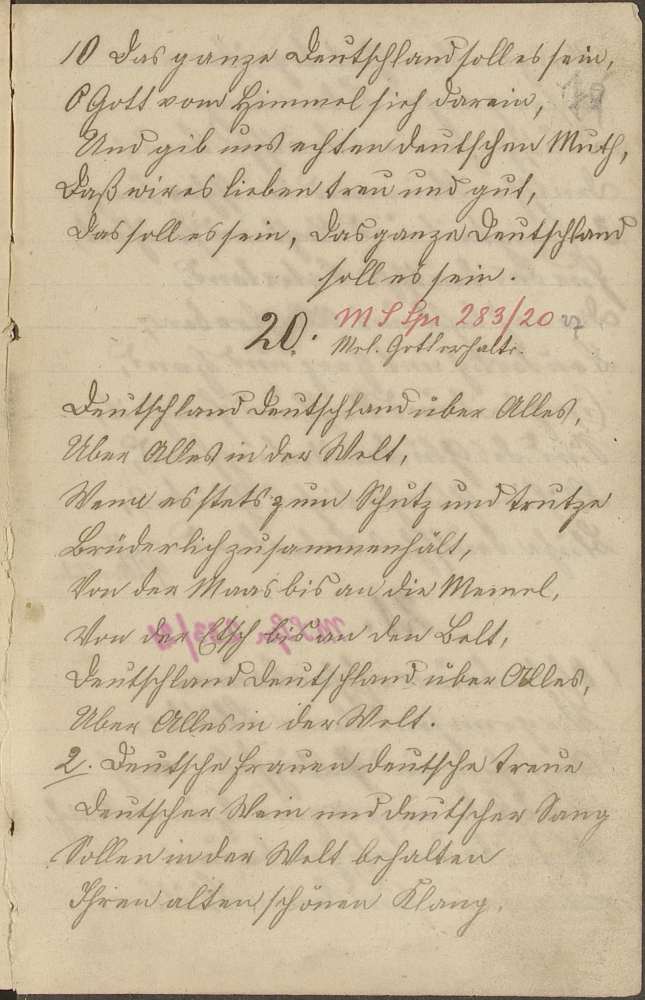 10 Das ganze Deutschland soll es sein,
O Gott vom Himmel sieh darein,
Und gib uns echten deutschen Muth,
Daß wir es lieben treu und gut,
Das soll es sein, das ganze Deutschland
soll es sein.
20. MS Spr 283/20
Mel. Gott erhalte.
Deutschland Deutschland über Alles,
Über Alles in der Welt,
Wenn es stets zum Schutz und trutze
Brüderlich zusammenhält,
Von der Maas bis an die Memel,
Von der Etsch bis an den Belt,
Deutschland Deutschland über Alles,
Über Alles in der Welt.
2. Deutsche Frauen deutsche Treue
Deutscher Wein und deutscher Sang
Sollen in der Welt behalten
Ihren alten schönen Klang.